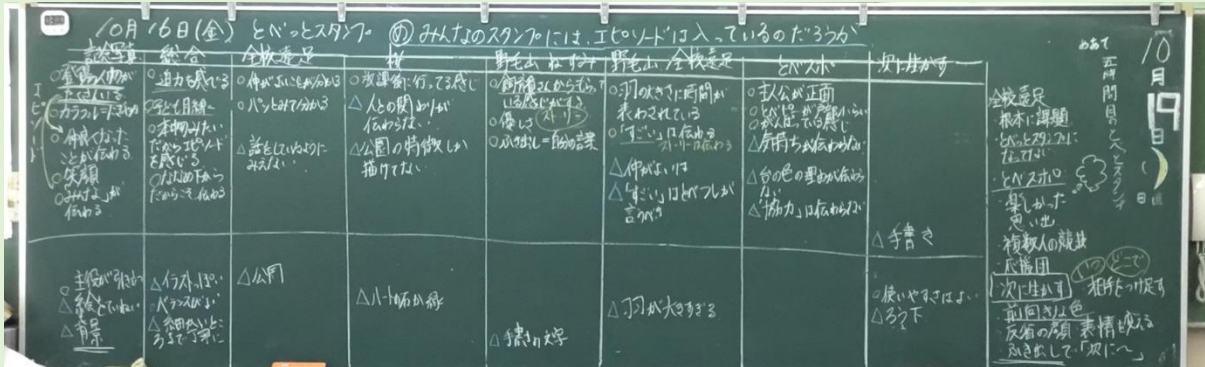 10月16日(金) とべっとスタンプ め みんなのスタンプには、エピソードは入っているのだろうか
総合
全校遠足
野毛山 ねずみ
野毛山 全校遠足
とべスポ
次に生かす
エピソード
○仲良くなった
ことが伝わる
○笑顔
○みんなが
伝わる
○迫力を感じる
だからエピソード
を感じる
○ななめ下から
だからこそ伝わる
○仲がよいことが分かる
○パッとみて分かる
△話をしているように
みえない
○放課後に行ってる感じ
△人との関わりが
伝わらない
△公園の特徴しか
描けてない
○飼育員さんからもら
いる感じがする
ストーリー
○優しさ
○ふき出し=自分の言葉
○羽の大きさに時間が
表わされている
○「すごい」は伝わる
ストーリーは伝わる
△仲がよいは
△「すごい」はとべっしが
言うべき
○主人公が正面
がんばっている感じ
△気持ちが伝わらない
△台の色の理由が伝わら
ない
△「協力」は伝わらない
△手書き
○主役が引き立つ
△絵とていねい
△背景
△イラストっぽい
○バランスがよい
△細かいとこ
ろまで丁寧に
△公園
△ハートか石か縁
△手書き文字
△羽が大きすぎる
○使いやすさはよい
△ろう下
10月19日( )
めあて
五時間目とべっとスタンプ
日直
全校遠足
根本に課題
とべっとスタンプに
なってない
・とべスポ
楽しかった
思い出
・複数人の競技
・応援団
いつ どこで
・次に生かす
相手をつけ足す
前向きな色
反省の顔 表情を変える
ふき出しで「次に〜」